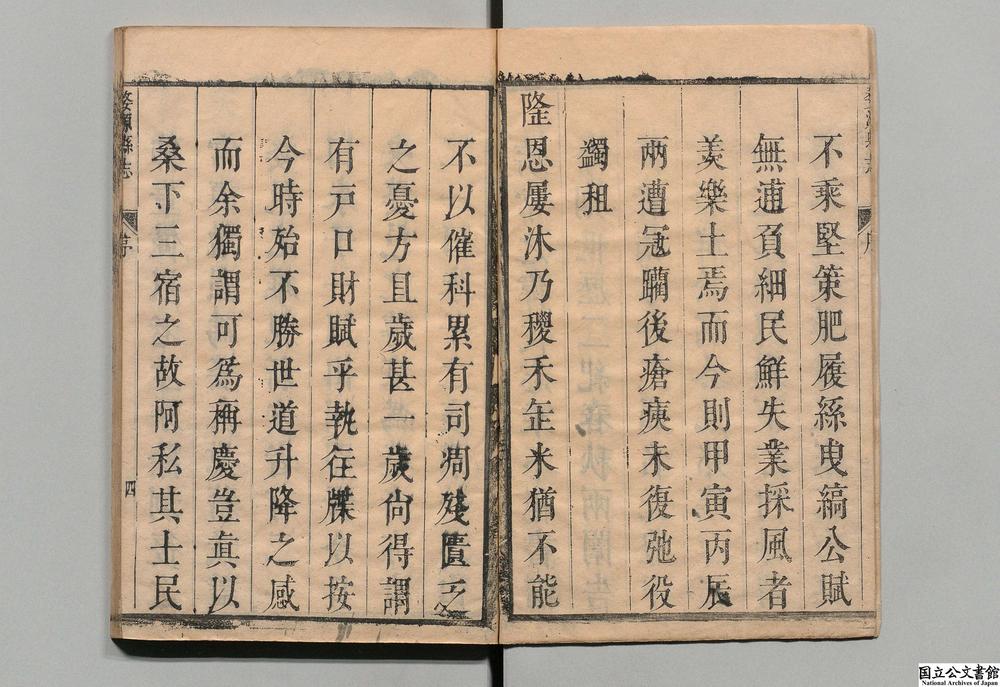 不乘堅策肥履絲曳縞公賦
無逋負細民鮮失業採風者
羨樂土焉而今則甲寅丙辰
兩遭冦躪後瘡痍未復弛役
蠲租
隆恩屢沐乃稷禾缶米猶不能
不以催科累有司凋殘匱乏
之憂方且歲甚一歲尙得謂
有戸口財賦乎執往牒以按
今時殆不勝世道升降之感
而余獨謂可爲稱慶豈眞以
桑下三宿之故阿私其士民
婺源縣志
序
四
国立公文書館
National Archives of Japan